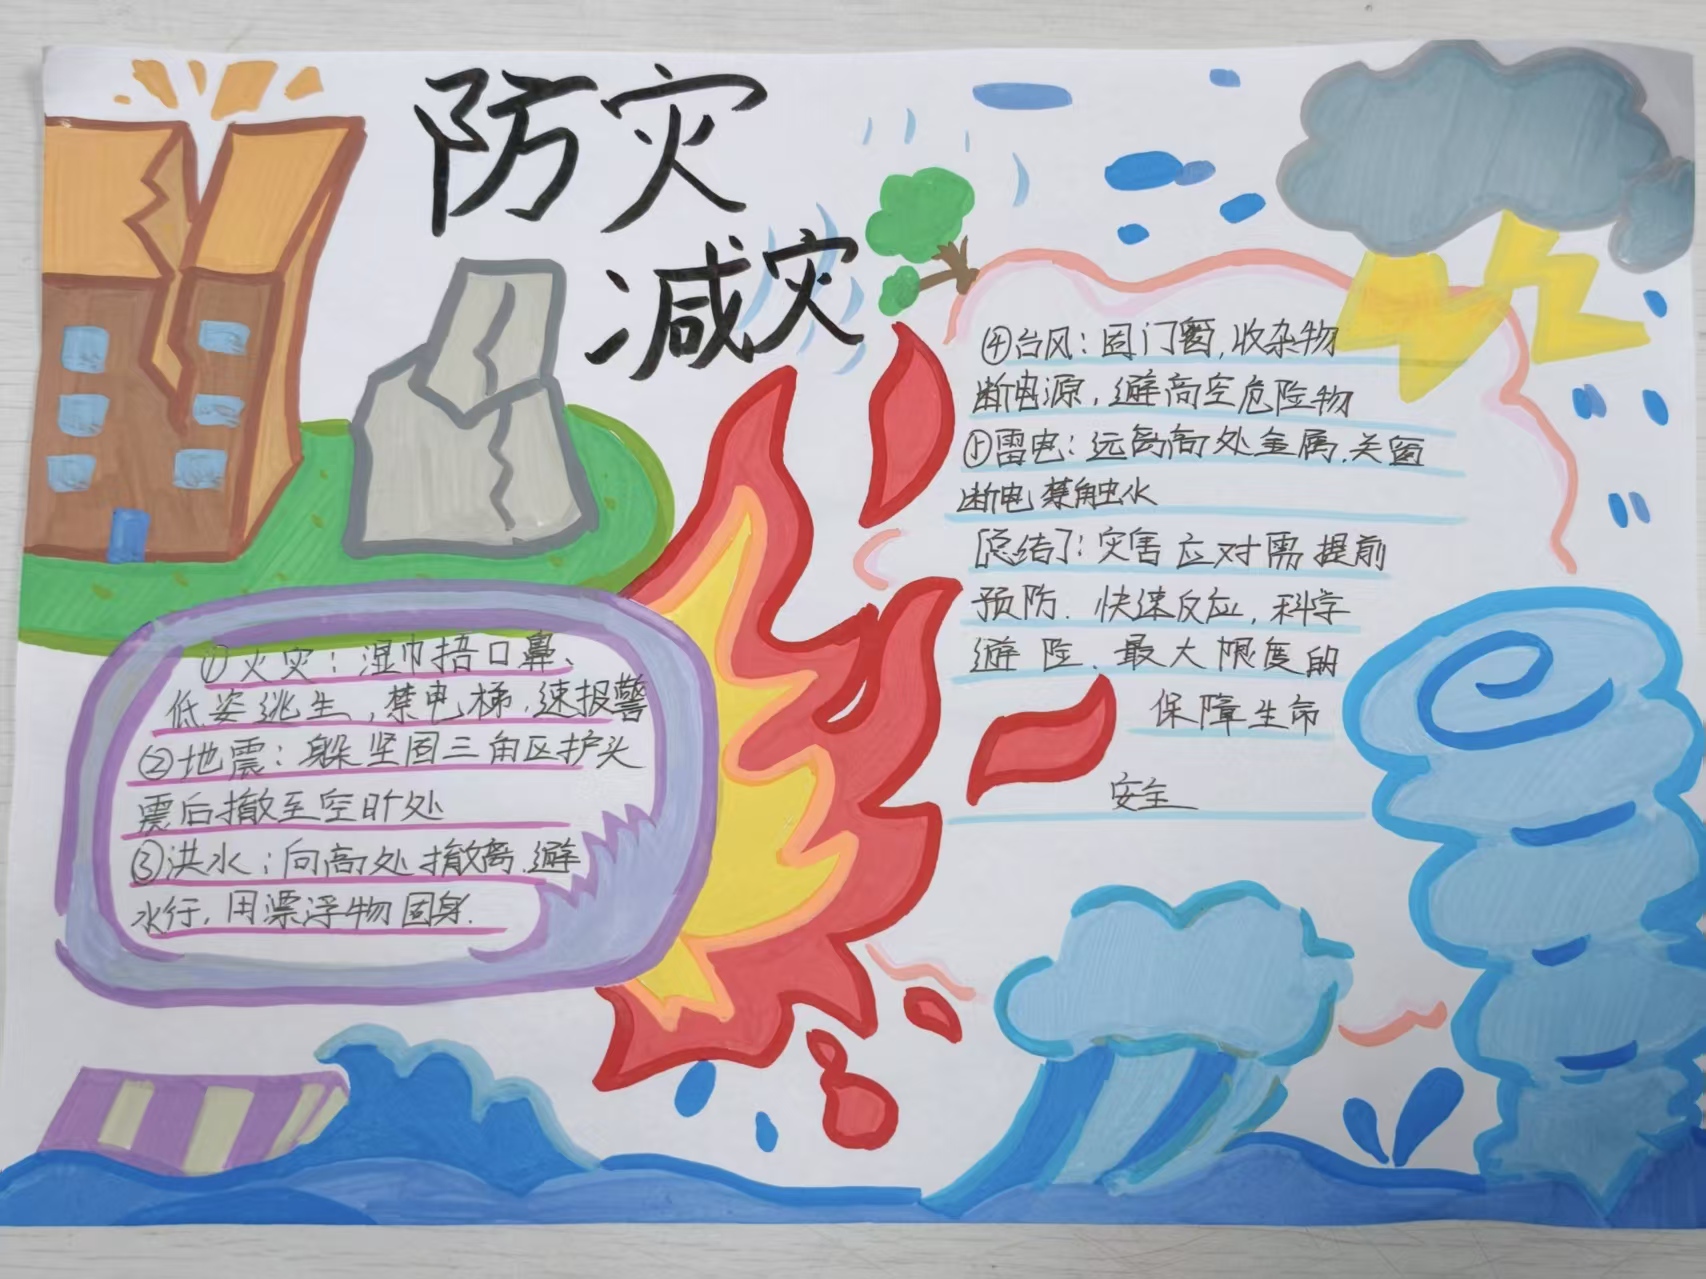 防灾
减灾
①火灾：湿巾捂口鼻、
低姿逃生，禁电梯，速报警
②地震：躲坚固三角区护头
震后撤至空旷处
③洪水：向高处撤离，避
水行，用漂浮物固身．
④台风：固门窗，收杂物
断电源，避高空危险物
雷电：远离高处金属．关窗
断电禁触水
[总结]：灾害应对需提前
预防．快速反应，科学
避险．最大限度的
保障生命
安全